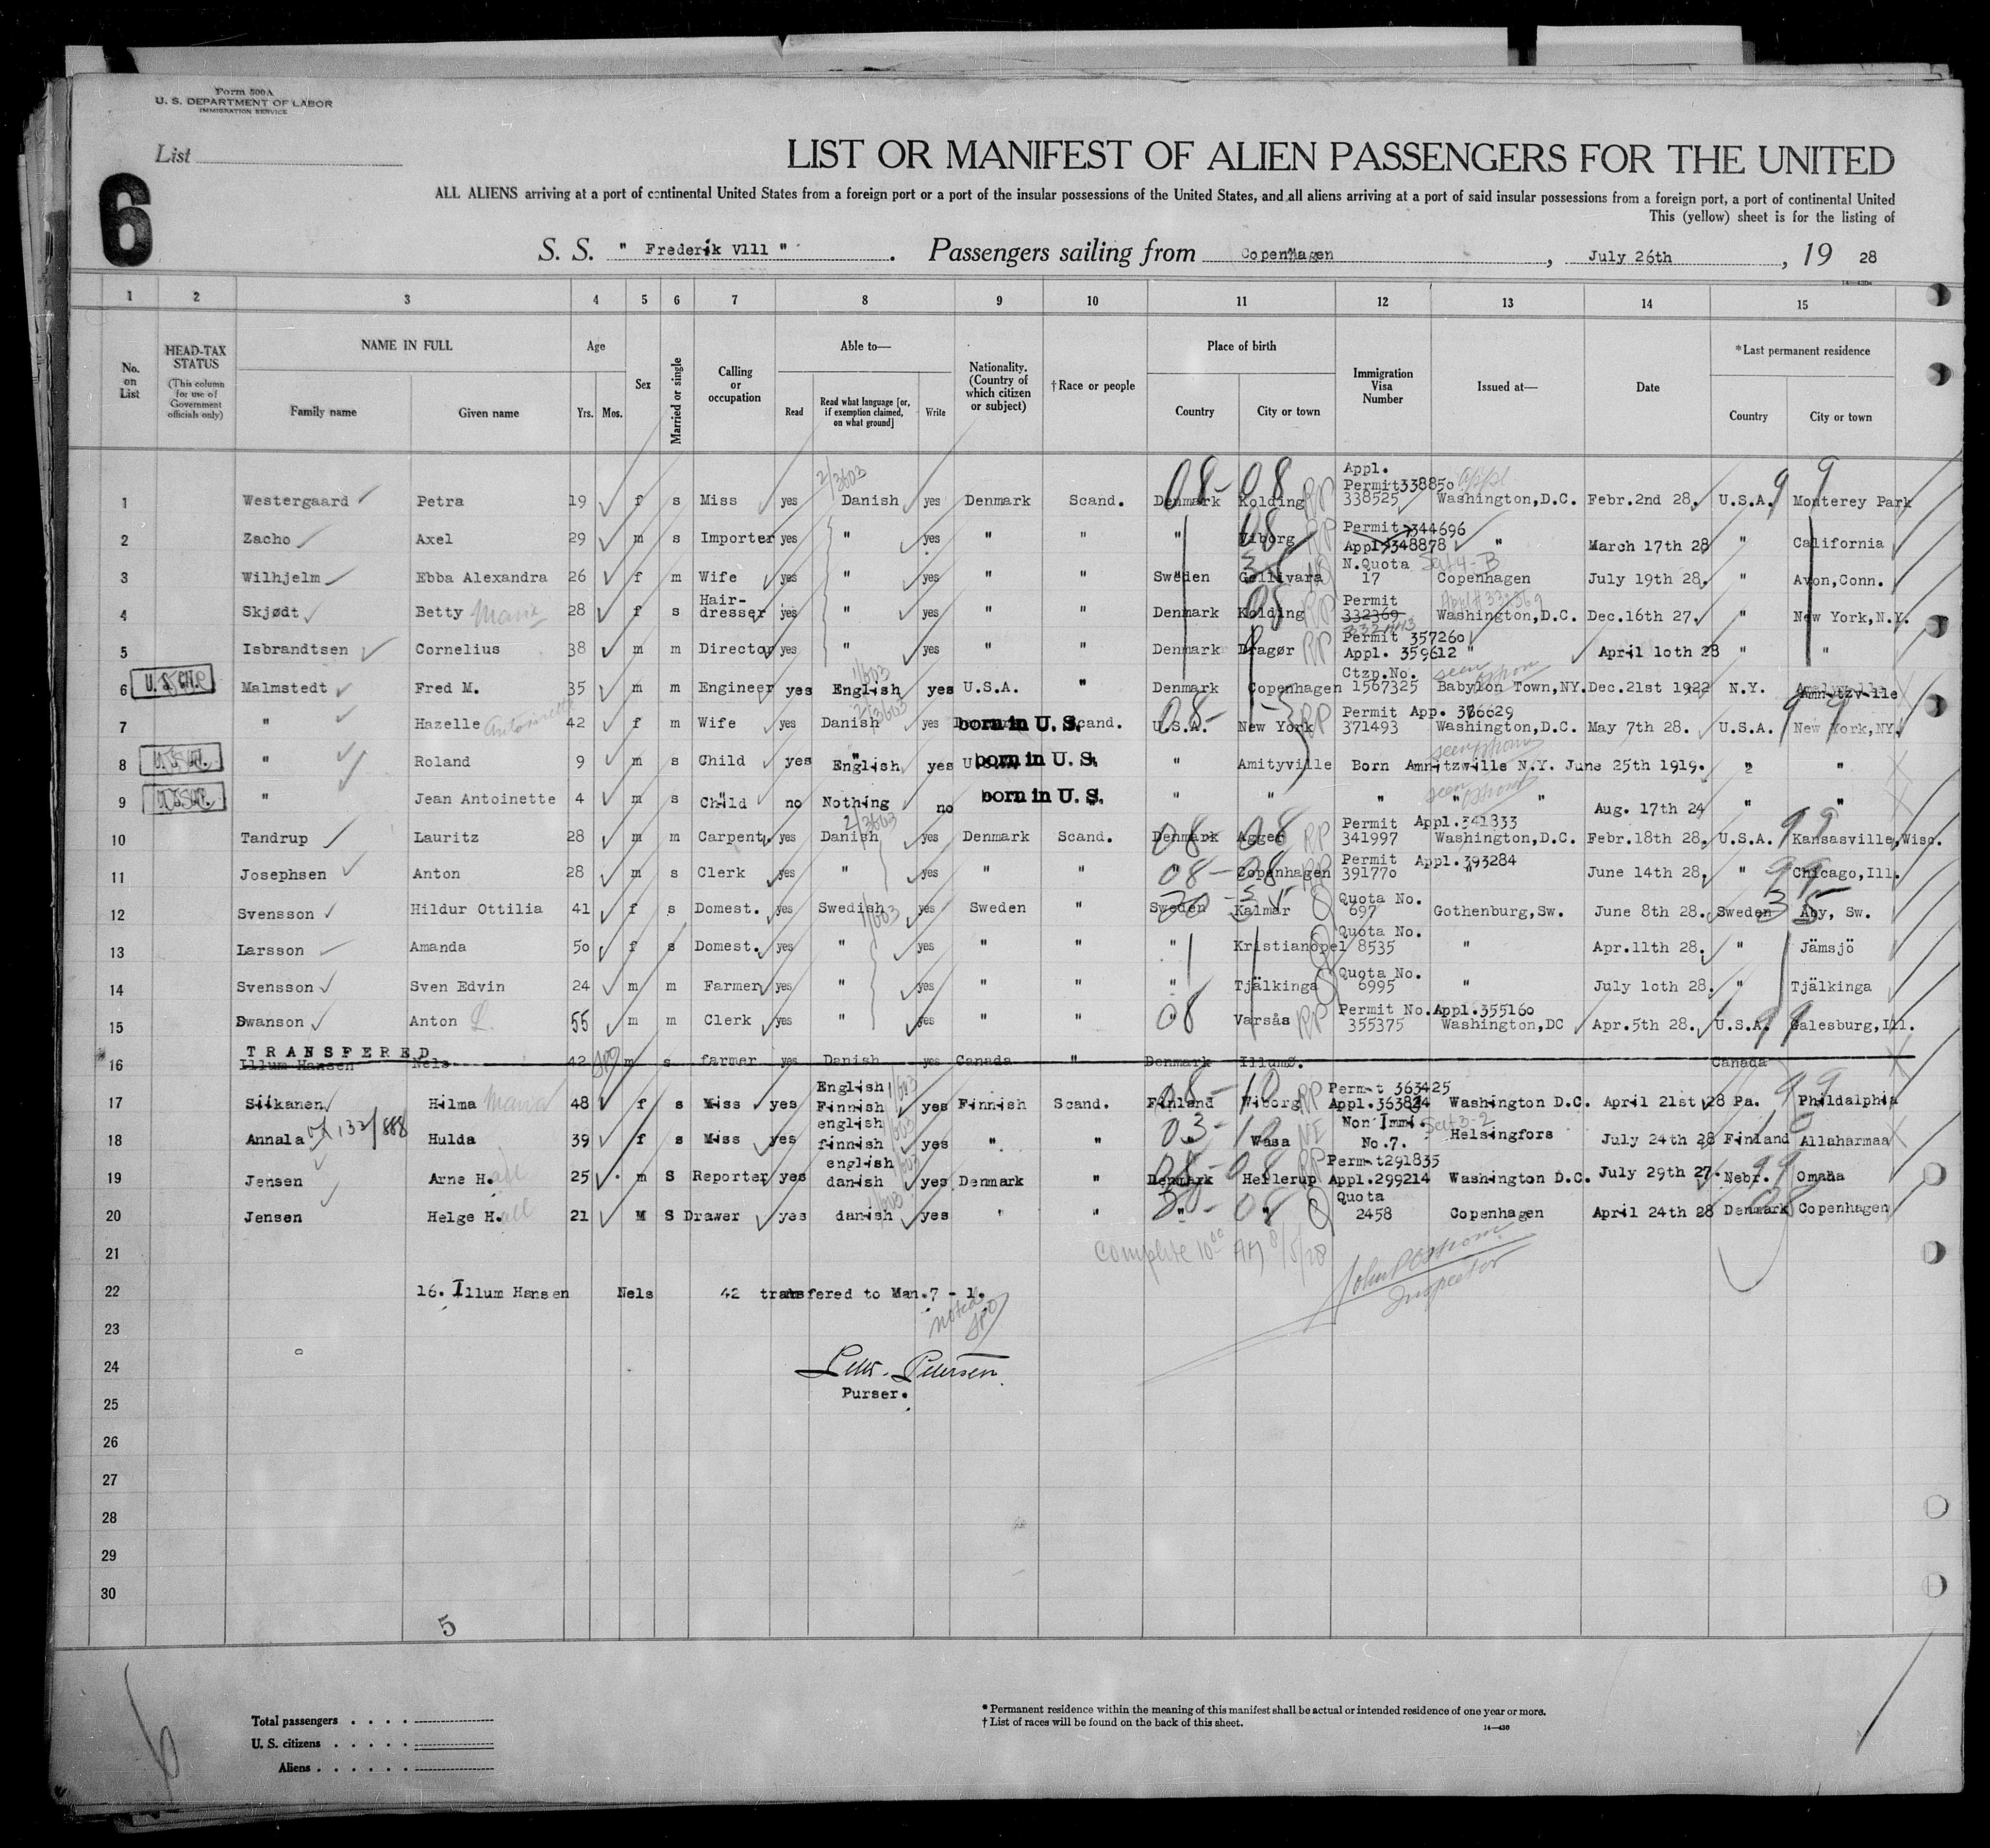 Form 500A
U. S. DEPARTMENT OF LABOR
IMMIGRATION SERVICE
List
6
LIST OR MANIFEST OF ALIEN PASSENGERS FOR THE UNITED
ALL ALIENS arriving at a port of continental United States from a foreign port or a port of the insular possessions of the United States, and all aliens arriving at a port of said insular possessions from a foreign port, a port of continental United
This (yellow) sheet is for the listing of
S. S. " Frederik Vlll " . Passengers sailing from Copenhagen , July 26th , 19 28
1 2 3 4 5 6 7 8 9 10 11 12 13 14 15
No. on List HEAD-TAX STATUS (This column for use of Government officials only) NAME IN FULL Family name Given name Age Yrs. Mos. Sex Married or single Calling or occupation Able to— Read Read what language [or, if exemption claimed, on what ground] Write Nationality. (Country of which citizen or subject) †Race or people Place of birth Country City or town Immigration Visa Number Issued at— Date *Last permanent residence Country City or town
1 Westergaard Petra 19 f s Miss yes Danish yes Denmark Scand. Denmark Kolding Appl. Permit338850 338525 Washington,D.C. Febr.2nd 28. U.S.A. Monterey Park
2 Zacho Axel 29 m s Importer yes " yes " " " Viborg Permit 344696 Appl.348878 " March 17th 28 " California
3 Wilhjelm Ebba Alexandra 26 f m Wife yes " yes " " Sweden Gellivara N.Quota 17 Copenhagen July 19th 28. " Avon,Conn.
4 Skjødt Betty Marie 28 f s Hair-dresser yes " yes " " Denmark Kolding Permit 332369 Washington,D.C. Dec.16th 27. " New York,N.Y.
5 Isbrandtsen Cornelius 38 m m Director yes " yes " " Denmark Dragør Permit 357260 Appl. 359612 " April 1oth 28 " "
6 U. S. CIT. Malmstedt Fred M. 35 m m Engineer yes English yes U.S.A. " Denmark Copenhagen Ctzp.No. 1567325 Babylon Town,NY. Dec.21st 1922 N.Y.
7 " Hazelle Antoinette 42 f m Wife yes Danish yes born in U. S. Scand. U.S.A. New York Permit App. 376629 371493 Washington,D.C. May 7th 28. U.S.A. New York,NY.
8 " Roland 9 m s Child yes English yes born in U. S. " Amityville Born Amnitzville N.Y. June 25th 1919. " "
9 " Jean Antoinette 4 m s Child no Nothing no born in U. S. " " " " " Aug. 17th 24 " "
10 Tandrup Lauritz 28 m m Carpent. yes Danish yes Denmark Scand. Denmark Agger Permit Appl.341333 341997 Washington,D.C. Febr.18th 28. U.S.A. Kansasville,Wisc.
11 Josephsen Anton 28 m s Clerk yes " yes " " " Copenhagen Permit Appl.393284 391770 " June 14th 28. " Chicago,Ill.
12 Svensson Hildur Ottilia 41 f s Domest. yes Swedish yes Sweden " Sweden Kalmar Quota No. 697 Gothenburg,Sw. June 8th 28. Sweden Aby, Sw.
13 Larsson Amanda 50 f s Domest. yes " yes " " " Kristianopel Quota No. 8535 " Apr.11th 28. " Jämsjö
14 Svensson Sven Edvin 24 m m Farmer yes " yes " " " Tjälkinga Quota No. 6995 " July 1oth 28. " Tjälkinga
15 Swanson Anton L. 55 m m Clerk yes " yes " " " Varsås Permit No.Appl.355160 355375 Washington,DC Apr.5th 28. U.S.A. Galesburg,Ill.
TRANSFERED
16 Illum Hansen Nels 42 m s farmer yes Danish yes Canada " Denmark Illumø. Canada
17 Siikanen Hilma Maria 48 f s Miss yes English Finnish yes Finnish Scand. Finland Wiborg Permit 363425 Appl.363824 Washington D.C. April 21st 28 Pa. Phildalphia
18 Annala 132/888 Hulda 39 f s Miss yes english finnish yes " " Wasa Non Immi. No.7. Helsingfors July 24th 28 Finland Allaharmaa
19 Jensen Arne H. 25 m S Reporter yes english danish yes Denmark " Denmark Hellerup Permit291835 Appl.299214 Washington D.C. July 29th 27. Nebr. Omaha
20 Jensen Helge H. 21 M S Drawer yes danish yes " " " " Quota 2458 Copenhagen April 24th 28 Denmark Copenhagen
21 Complete 10 00 AM 8/5/28
22 16. Illum Hansen Nels 42 transfered to Man.7 - 1.
John P Ostrom
Inspector
23 noted
24 Petersen
Purser.
25
26
27
28
29
30
5
Total passengers . . . .
U. S. citizens . . . . .
Aliens . . . . . .
* Permanent residence within the meaning of this manifest shall be actual or intended residence of one year or more.
† List of races will be found on the back of this sheet.
14—430